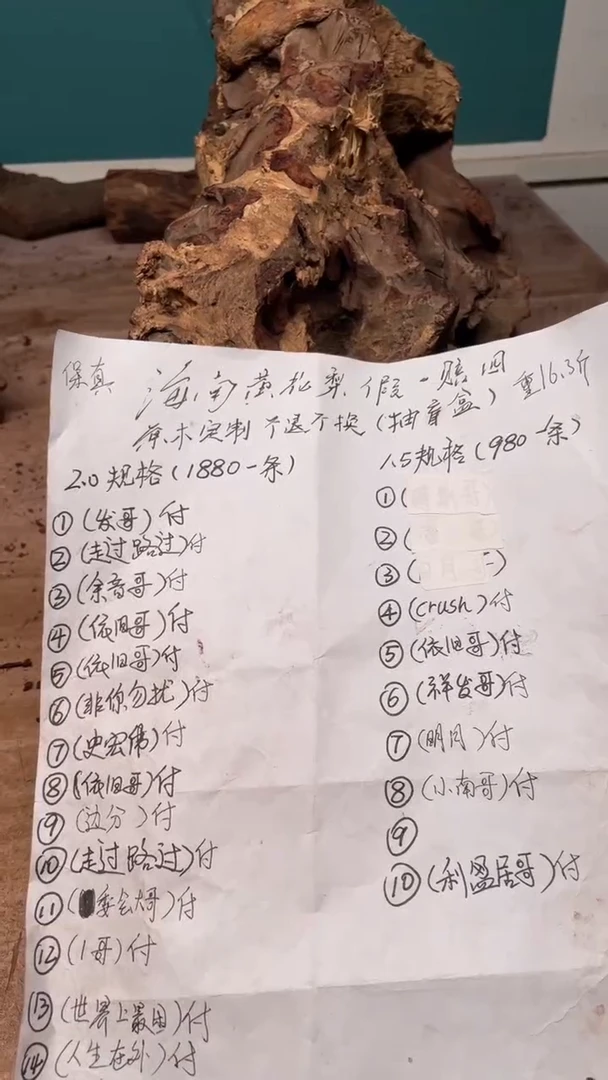 保真 海南黄花梨 假一赔四 重16.3斤
原木定制 不退不换(抽盲盒)
2.0规格(1880一条)
①(发哥)付
②(走过路过)付
③(余音哥)付
④(依旧哥)付
⑤(依旧哥)付
⑥(非你勿扰)付
⑦(史宏伟)付
⑧(依旧哥)付
⑨(边分)付
⑩(走过路过)付
⑪(委会大哥)付
⑫(1哥)付
⑬(世界上最困)付
⑭(人生在外)付
1.5规格(980一条)
①(
②(
③(
④(crush)付
⑤(依旧哥)付
⑥(祥发哥)付
⑦(明月)付
⑧(小南哥)付
⑨
⑩(利盈居哥)付